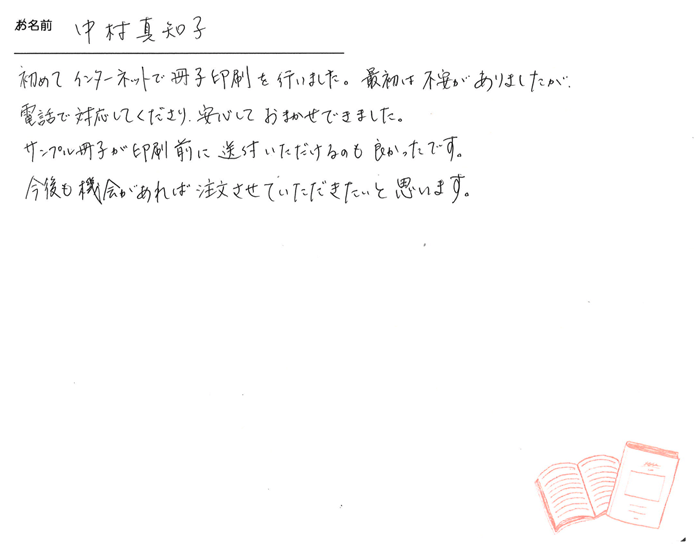 お名前 中村真知子
初めてインターネットで冊子印刷を行いました。最初は不安がありましたが、
電話で対応してくださり、安心しておまかせできました。
サンプル冊子が印刷前に送付いただけるのも良かったです。
今後も機会があれば注文させていただきたいと思います。